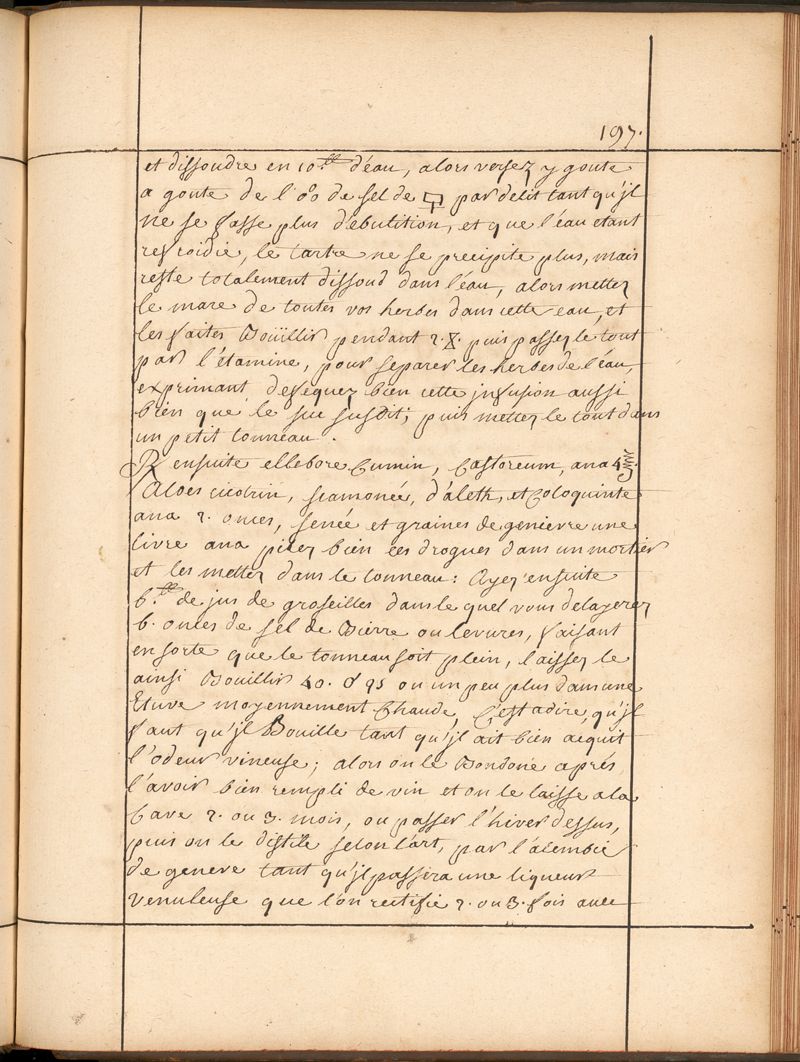 197.
et dissoudre en 10.lb d'eau, alors versez y goute
a goute de l'oo de sel de 🜿 par delit tant qu'jl
ne se fasse plus d'ebulition, et que l'eau etant
refroidie, le tartre ne se precipite plus, mais
reste totalement dissoud dans l'eau, alors mettez
le marc de toutes vos herbes dans cette eau, et
les faites Boüillir pendant 2. puis passez le tout
par l'étamine, pour separer les herbes de l'eau,
exprimant defequez bien cette jnfusion aussi
bien que le suc susdit; puis mettez le tout dans
un petit tonneau.
R ensuite ellebore Cumin, Castoreum, ana 4
Aloes cicotrin, scamonée, d'aleth, et Coloquinte
ana 2. onces, senée et graines de genievre une
livre ana pilez bien ces drogues dans un mortier
et les mettez dans le tonneau: Ayez ensuite
6.lb de jus de groseilles dans le quel vous delayerez
6. onces de sel de Bierre ou levures, faisant
en sorte que le tonneau soit plein, laissez le
ainsi Bouillir 40. ou un peu plus dans une
Etuve moyennement Chaude, C'est a dire, qu'jl
faut qu'jl Bouille tant qu'jl ait bien acquit
l'odeur vineuse; alors on le Bondone aprés
l'avoir bien rempli de vin et on le laisse a la
Cave 2. ou 3. mois, ou passer l'hiver dessus,
puis on le distile selon l'art, par l'alembic
de geneve tant qu'jl passera une liqueur
venuleuse que l'on rectifie 2. ou 3. fois avec